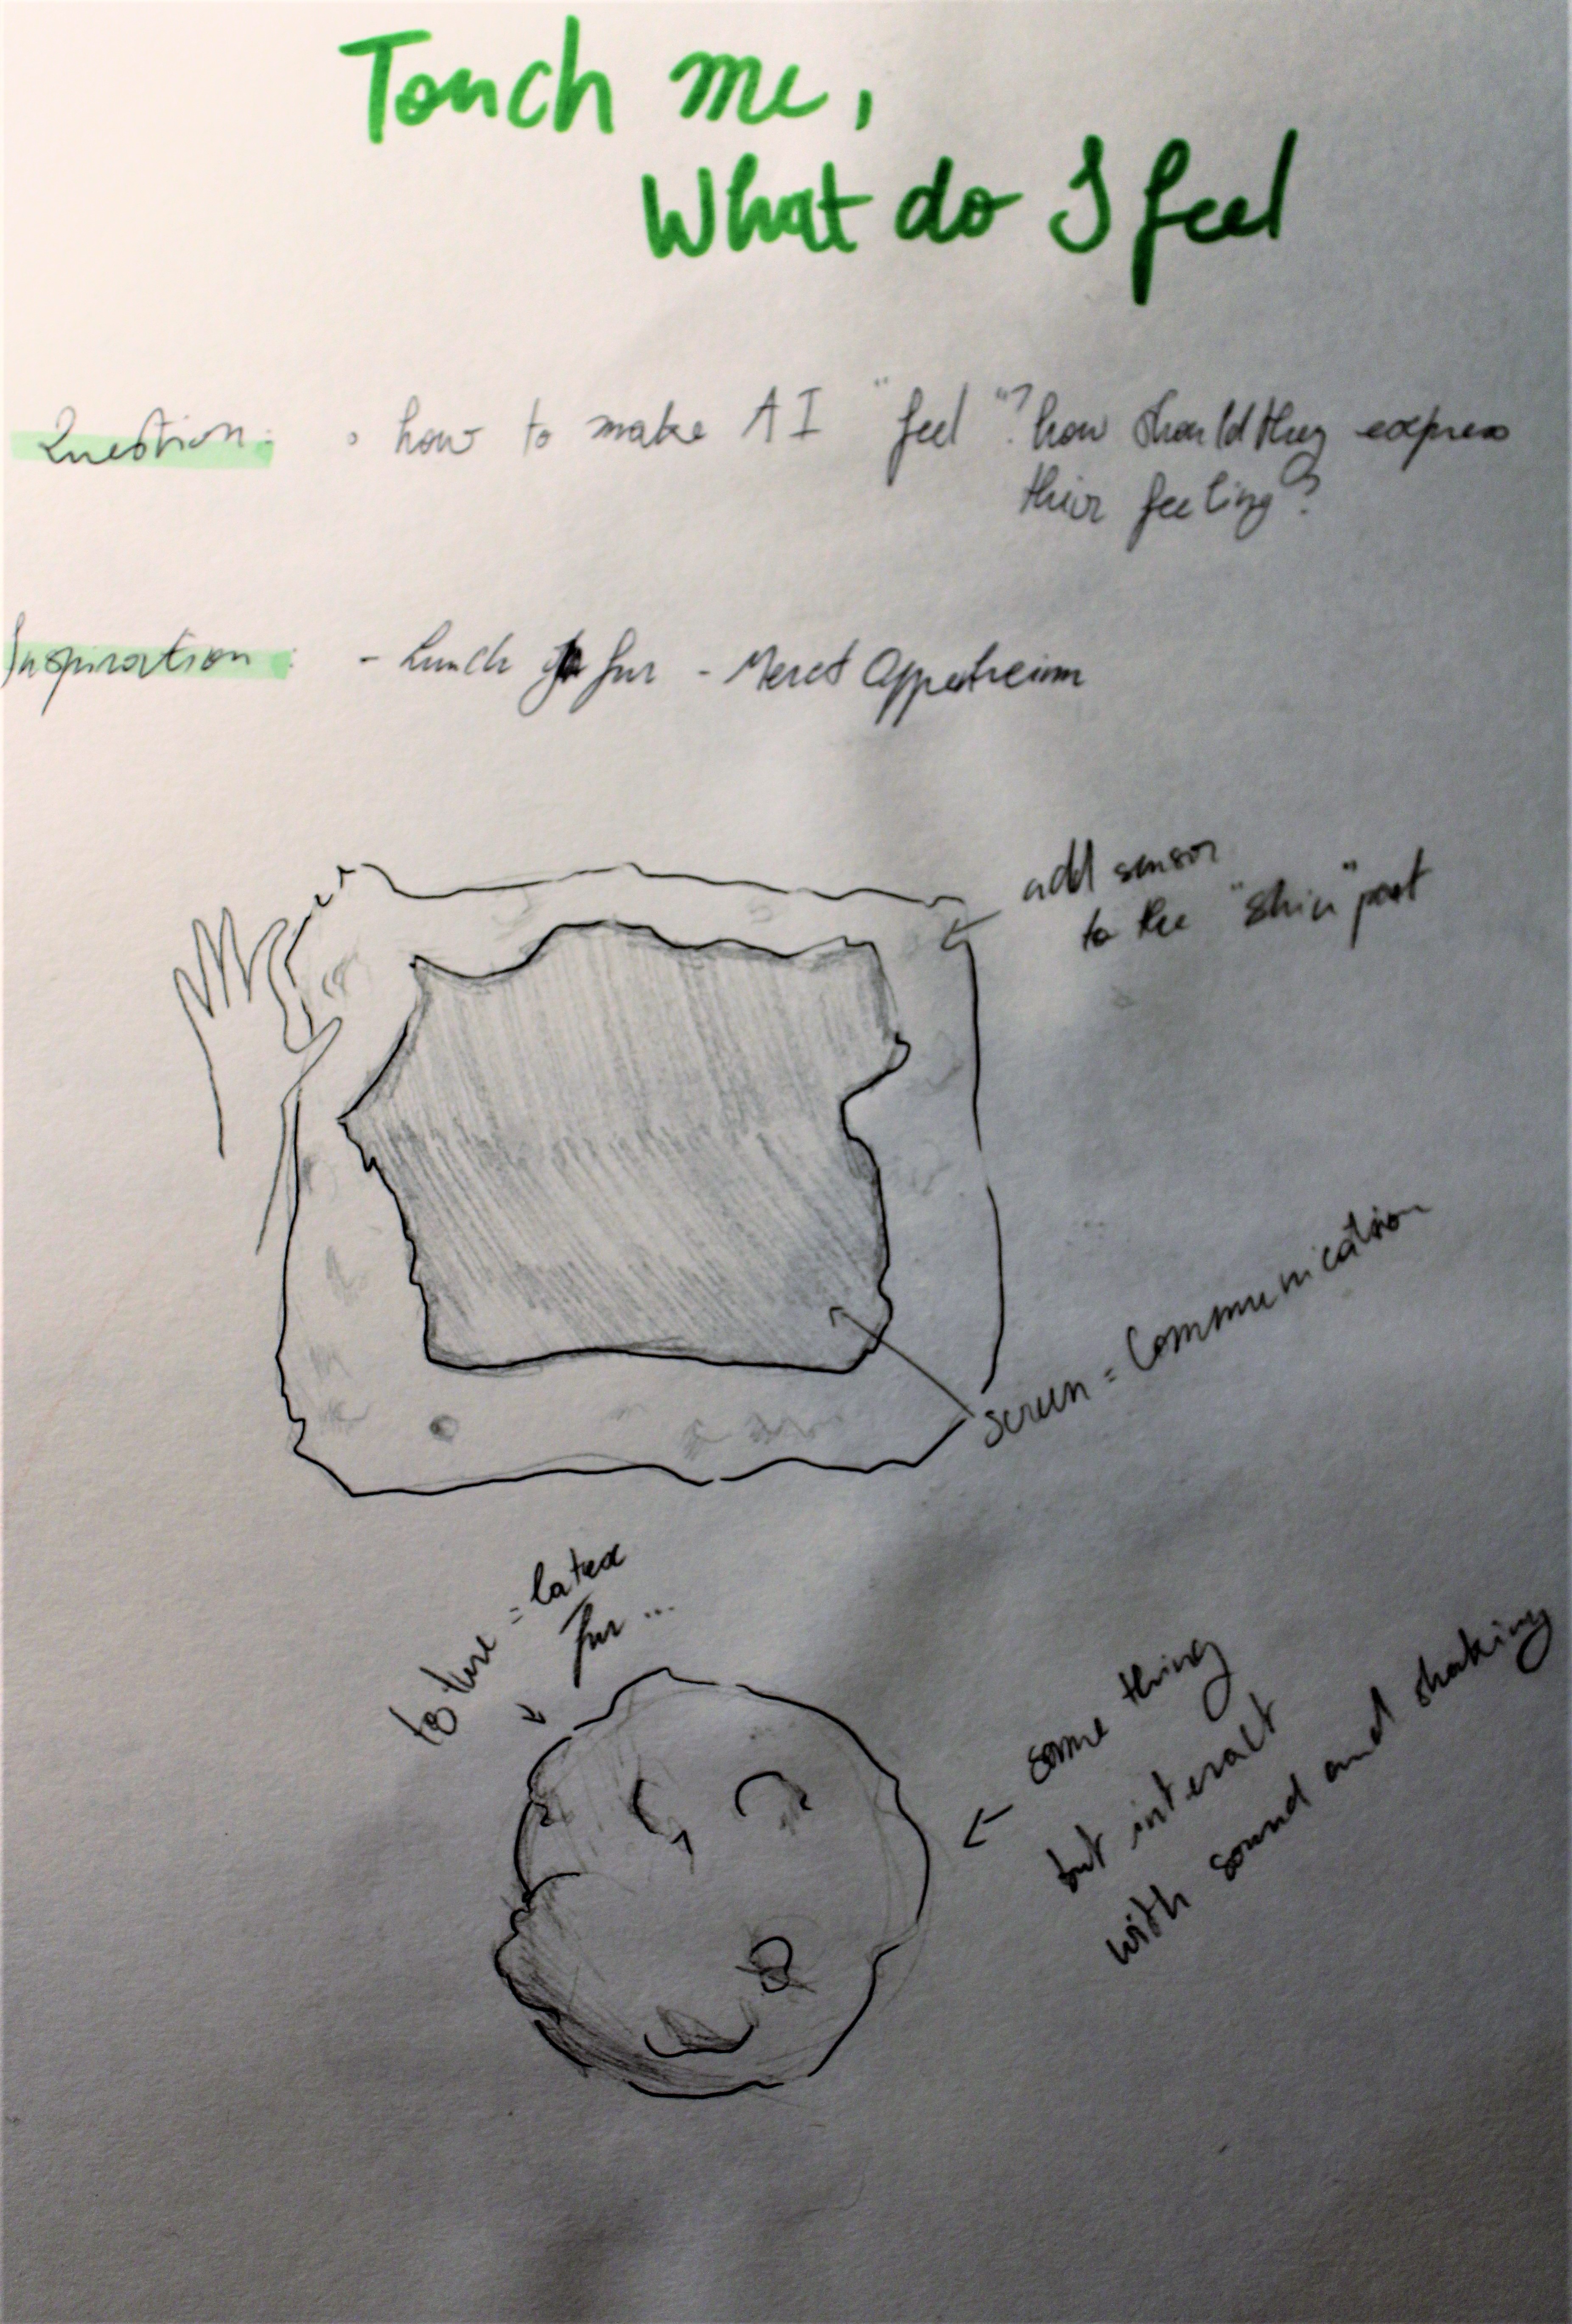 Touch me,
What do I feel
Question: • how to make AI "feel"? how should they express
their feeling?
Inspiration: - Lunch fur - Meret Oppenheim
add sensor
to the "skin" part
screen = Communication
texture = latex
fur ...
same thing
but interact
with sound and shaking